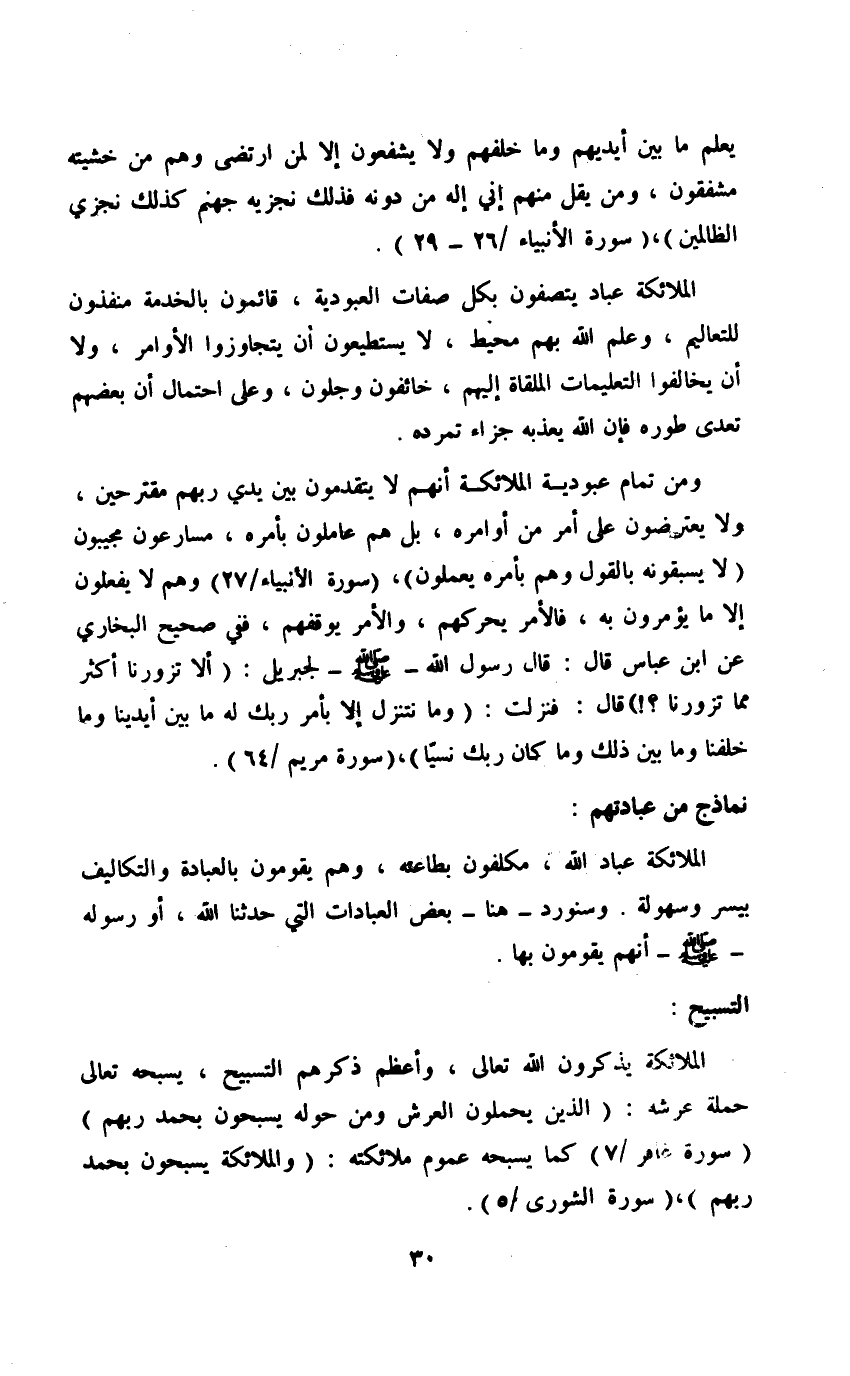 يعلم ما بين أيديهم وما خلفهم ولا يشفعون إلا لمن ارتضى وهم من خشيته
مشفقون ، ومن يقل منهم إني إله من دونه فذلك نجزيه جهنم كذلك نجزي
الظالمين )،( سورة الأنبياء /٢٦ ـ ٢٩ ) .
الملائكة عباد يتصفون بكل صفات العبودية ، قائمون بالخدمة منفذون
للتعاليم ، وعلم الله بهم محيط ، لا يستطيعون أن يتجاوزوا الأوامر ، ولا
أن يخالفوا التعليمات الملقاة إليهم ، خائفون وجلون ، وعلى احتمال أن بعضهم
تعدى طوره فإن الله يعذبه جزاء تمرده .
ومن تمام عبودية الملائكة أنهم لا يتقدمون بين يدي ربهم مقترحين ،
ولا يعترضون على أمر من أوامره ، بل هم عاملون بأمره ، مسارعون مجيبون
( لا يسبقونه بالقول وهم بأمره يعملون)، (سورة الأنبياء/٢٧) وهم لا يفعلون
إلا ما يؤمرون به ، فالأمر يحركهم ، والأمر يوقفهم ، ففي صحيح البخاري
عن ابن عباس قال : قال رسول الله ـ ﷺ ـ لجبريل : ( ألا تزورنا أكثر
مما تزورنا ؟!)قال : فنزلت : ( وما نتنزل إلا بأمر ربك له ما بين أيدينا وما
خلفنا وما بين ذلك وما كان ربك نسيًا )،(سورة مريم /٦٤ ) .
نماذج من عبادتهم :
الملائكة عباد الله ، مكلفون بطاعته ، وهم يقومون بالعبادة والتكاليف
بيسر وسهولة . وسنورد ـ هنا ـ بعض العبادات التي حدثنا الله ، أو رسوله
ـ ﷺ ـ أنهم يقومون بها .
التسبيح :
الملائكة يذكرون الله تعالى ، وأعظم ذكرهم التسبيح ، يسبحه تعالى
حملة عرشه : ( الذين يحملون العرش ومن حوله يسبحون بحمد ربهم )
( سورة غافر /٧) كما يسبحه عموم ملائكته : ( والملائكة يسبحون بحمد
ربهم )،( سورة الشورى /٥ ) .
٣٠